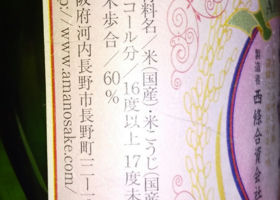 料名/米(国産)・米こうじ(国産
コール分/16度以上 17度未
米歩合/60%
阪府河内長野市長野町一二ー一
http://www.amanosake.com/
製造者 西條合資会社